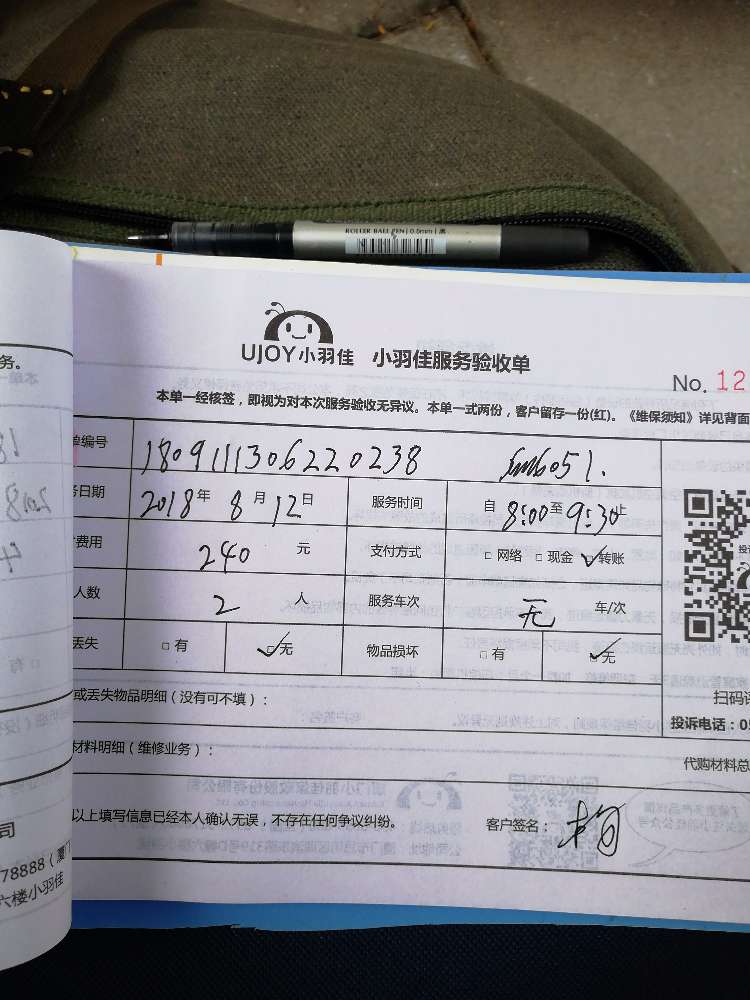 ROLLER BALL PEN | 0.5mm | 黑
务。
UJOY小羽佳 小羽佳服务验收单
No. 12
本单一经核签，即视为对本次服务验收无异议。本单一式两份，客户留存一份(红)。《维保须知》详见背面
单编号 1809111306220238
务日期 2018年 8月12日 服务时间 自8:00至9:30止
费用 240 元 支付方式 □网络 □现金 ☑转账
人数 2 人 服务车次 无 车/次
丢失 □有 ☑无 物品损坏 □有 ☑无
或丢失物品明细（没有可不填）：
扫码
投诉电话：05
材料明细（维修业务）：
代购材料总
以上填写信息已经本人确认无误，不存在任何争议纠纷。 客户签名：
司
78888（厦门
六楼小羽佳